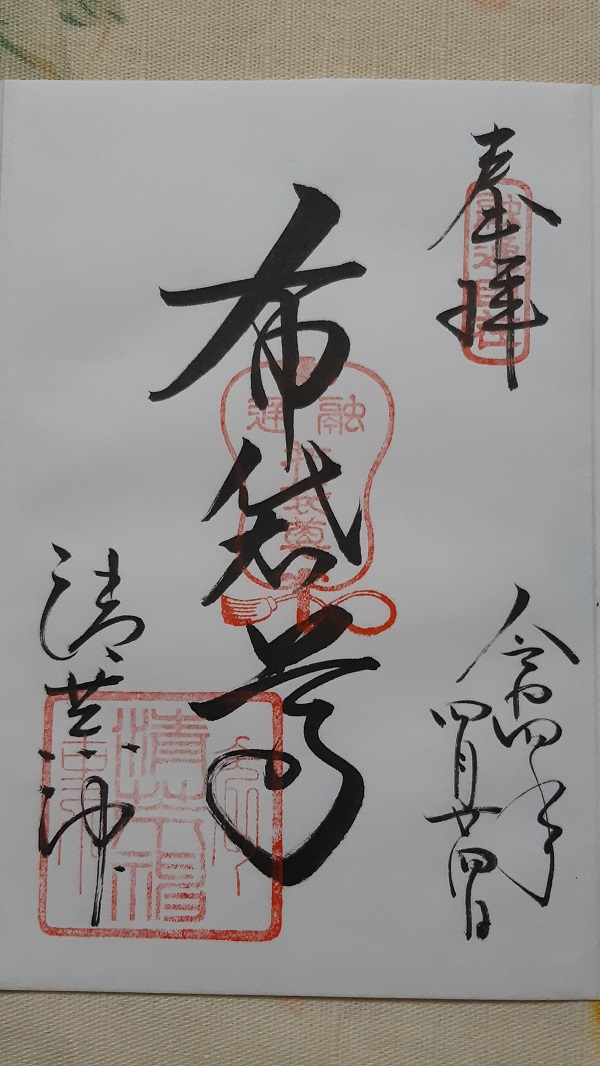 奉拝
融通自在
布袋尊
融通
布袋尊
令和四年
四月廿四日
清荒神
清荒神